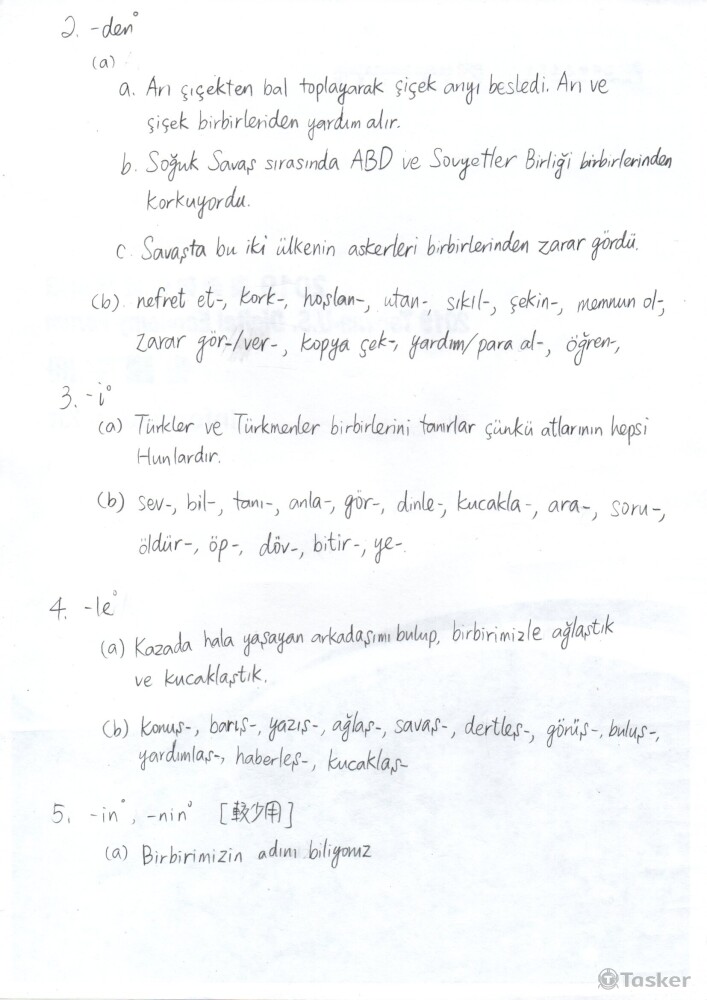 2. -den°
(a)
a. Arı çiçekten bal toplayarak çiçek arıyı besledi. Arı ve
çiçek birbirleriden yardım alır.
b. Soğuk Savaş sırasında ABD ve Sovyetler Birliği birbirlerinden
korkuyordu.
c. Savaşta bu iki ülkenin askerleri birbirlerinden zarar gördü.
(b) nefret et-, kork-, hoşlan-, utan-, sıkıl-, çekin-, memnun ol-,
zarar gör-/ver-, kopya çek-, yardım/para al-, öğren-,
3. -i°
(a) Türkler ve Türkmenler birbirlerini tanırlar çünkü atlarının hepsi
Hunlardır.
(b) sev-, bil-, tanı-, anla-, gör-, dinle-, kucakla-, ara-, soru-,
öldür-, öp-, döv-, bitir-, ye-
4. -le°
(a) Kazada hala yaşayan arkadaşımı bulup, birbirimizle ağlaştık
ve kucaklaştık.
(b) konuş-, barış-, yazış-, ağlaş-, savaş-, dertleş-, görüş-, buluş-,
yardımlaş-, haberleş-, kucaklaş-
5. -in°, -nin° [較少用]
(a) Birbirimizin adını biliyoruz
Tasker